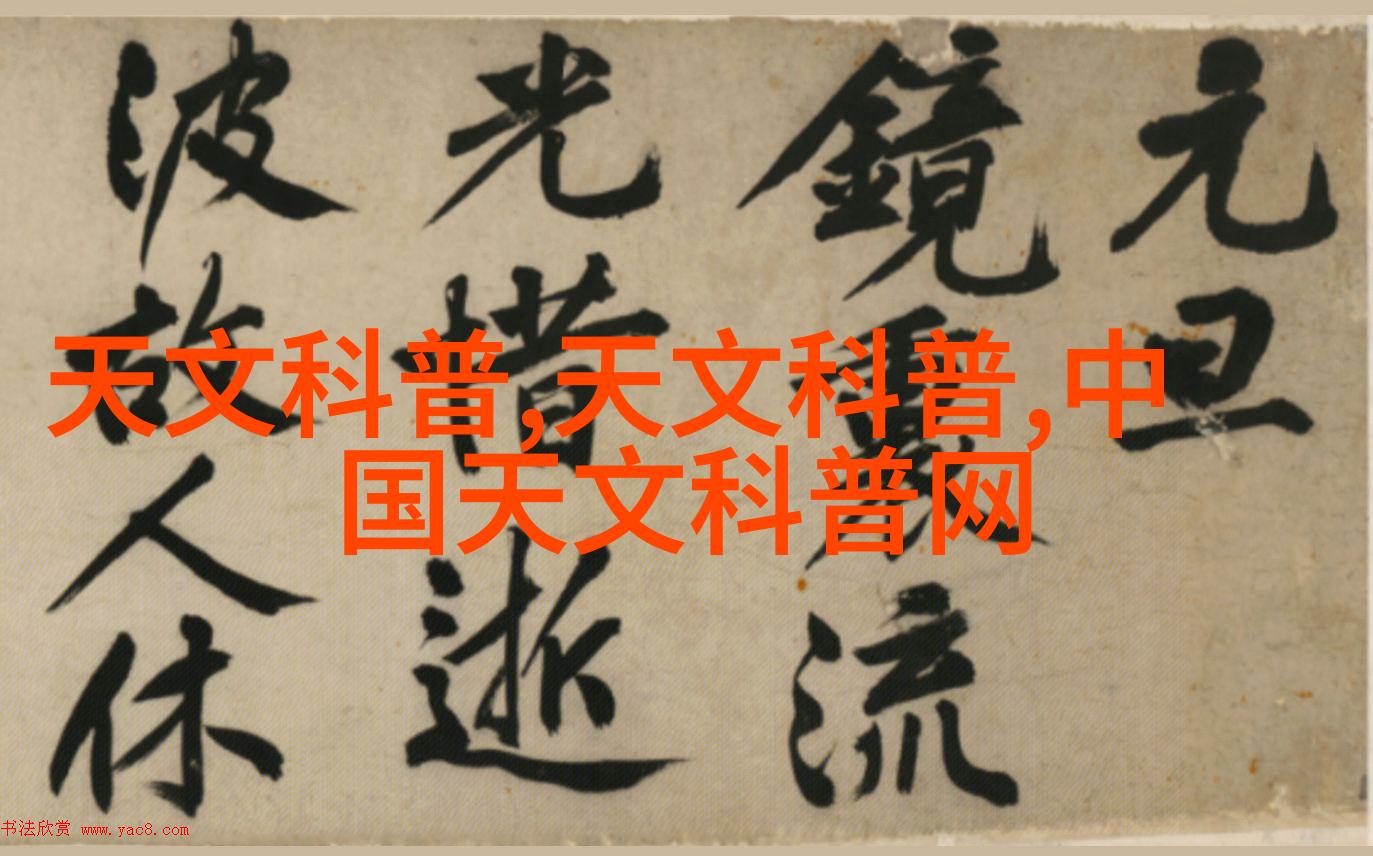 元旦
鏡裏流
光惜逝
波故人休
天文科普,天文科普,中
国天文科普网
书法欣赏 www.yac8.com